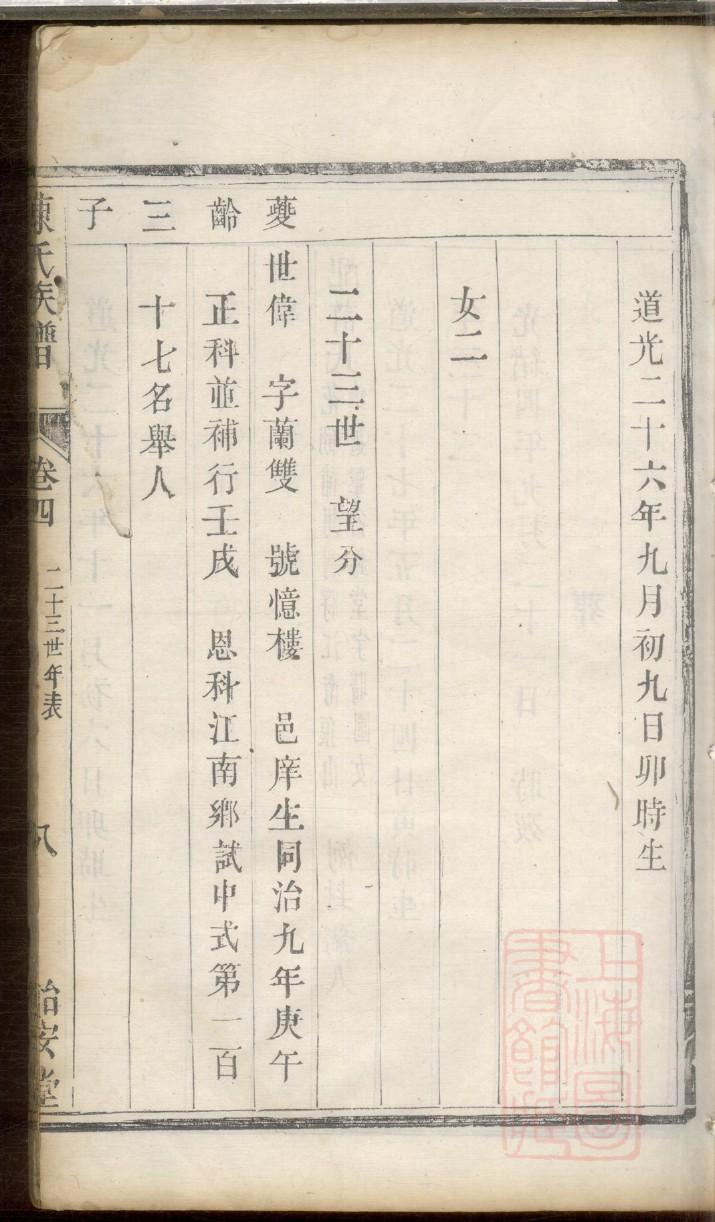 道光二十六年九月初九日卯時生
女二
二十三世　望分
夔齡三子
世偉　字蘭雙　號憶樓　邑庠生同治九年庚午
正科並補行壬戌　恩科江南鄉試中式第一百
十七名舉人
陳氏族譜　卷四　二十三世年表　八　怡安堂
上海圖書館藏